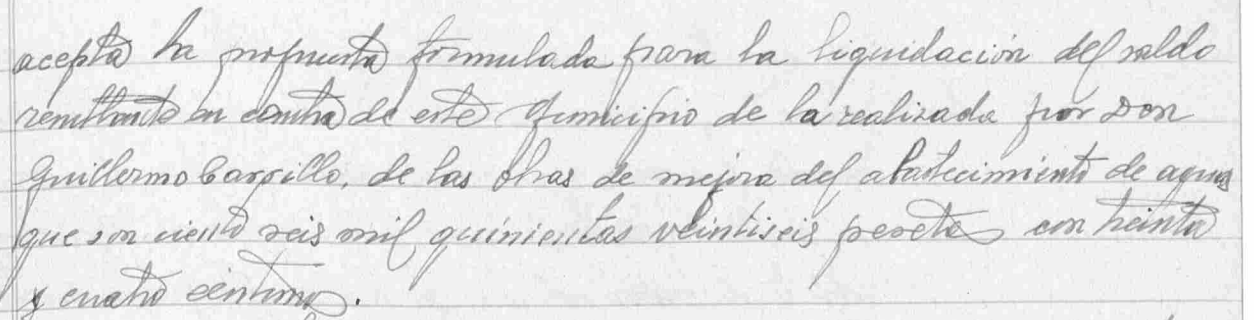 acepta la propuesta formulada para la liquidación del saldo
resultante en contra de este Municipio de la realizada por Don
Guillermo Carrillo, de las obras de mejora del abastecimiento de aguas
que son ciento seis mil quinientas veintiseis pesetas con treinta
y cuatro centimos.